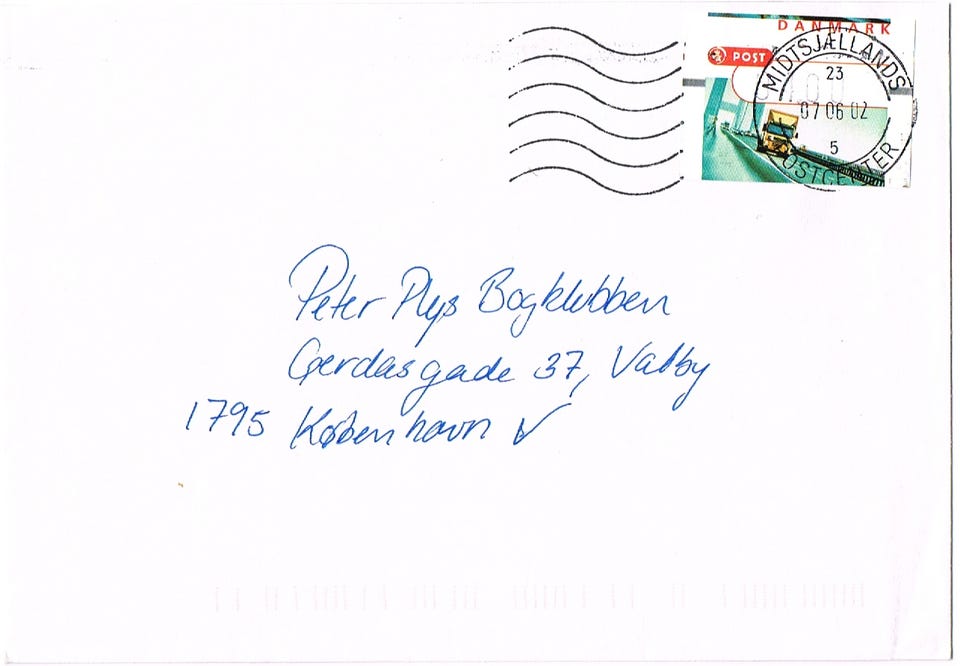 DANMARK
POST
MIDTSJÆLLANDS
23
07 06 02
5
POSTCENTER
Peter Plys Bogklubben
Gerdasgade 37, Valby
1795 København V